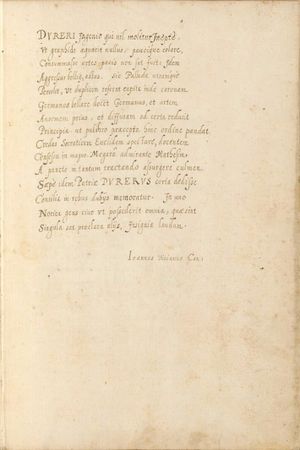 DVRERI ingenio qui nil molitur inepte,
Vt graphidi equarit nullus, paucique colore,
Consummasse artes pacis non sat fuit, idem
Aggressus bellig, astus. Sic Pallada utramque
Percoluit, ut duplicem referret capite inde coronam.
Germanos bellare docet Germanus, et artem
Anormem prius, et diffusam ad certa reducit
Principia, ut pulchro praecepta hinc ordine pandat.
Credas Socraticum Euclidem spectare, docentem
Consessu in magno, Megara admirante Mathesin,
A puncto in tantum tractando assurgere culmen.
Saepe idem Patriae DVRERVS certa dedisse
Consilia in rebus dubijs memoratur. In uno
Noricu gens cive ut possederit omnia, quae sint
Singula sat praeclara alijs, insignia laudum.
Ioannes